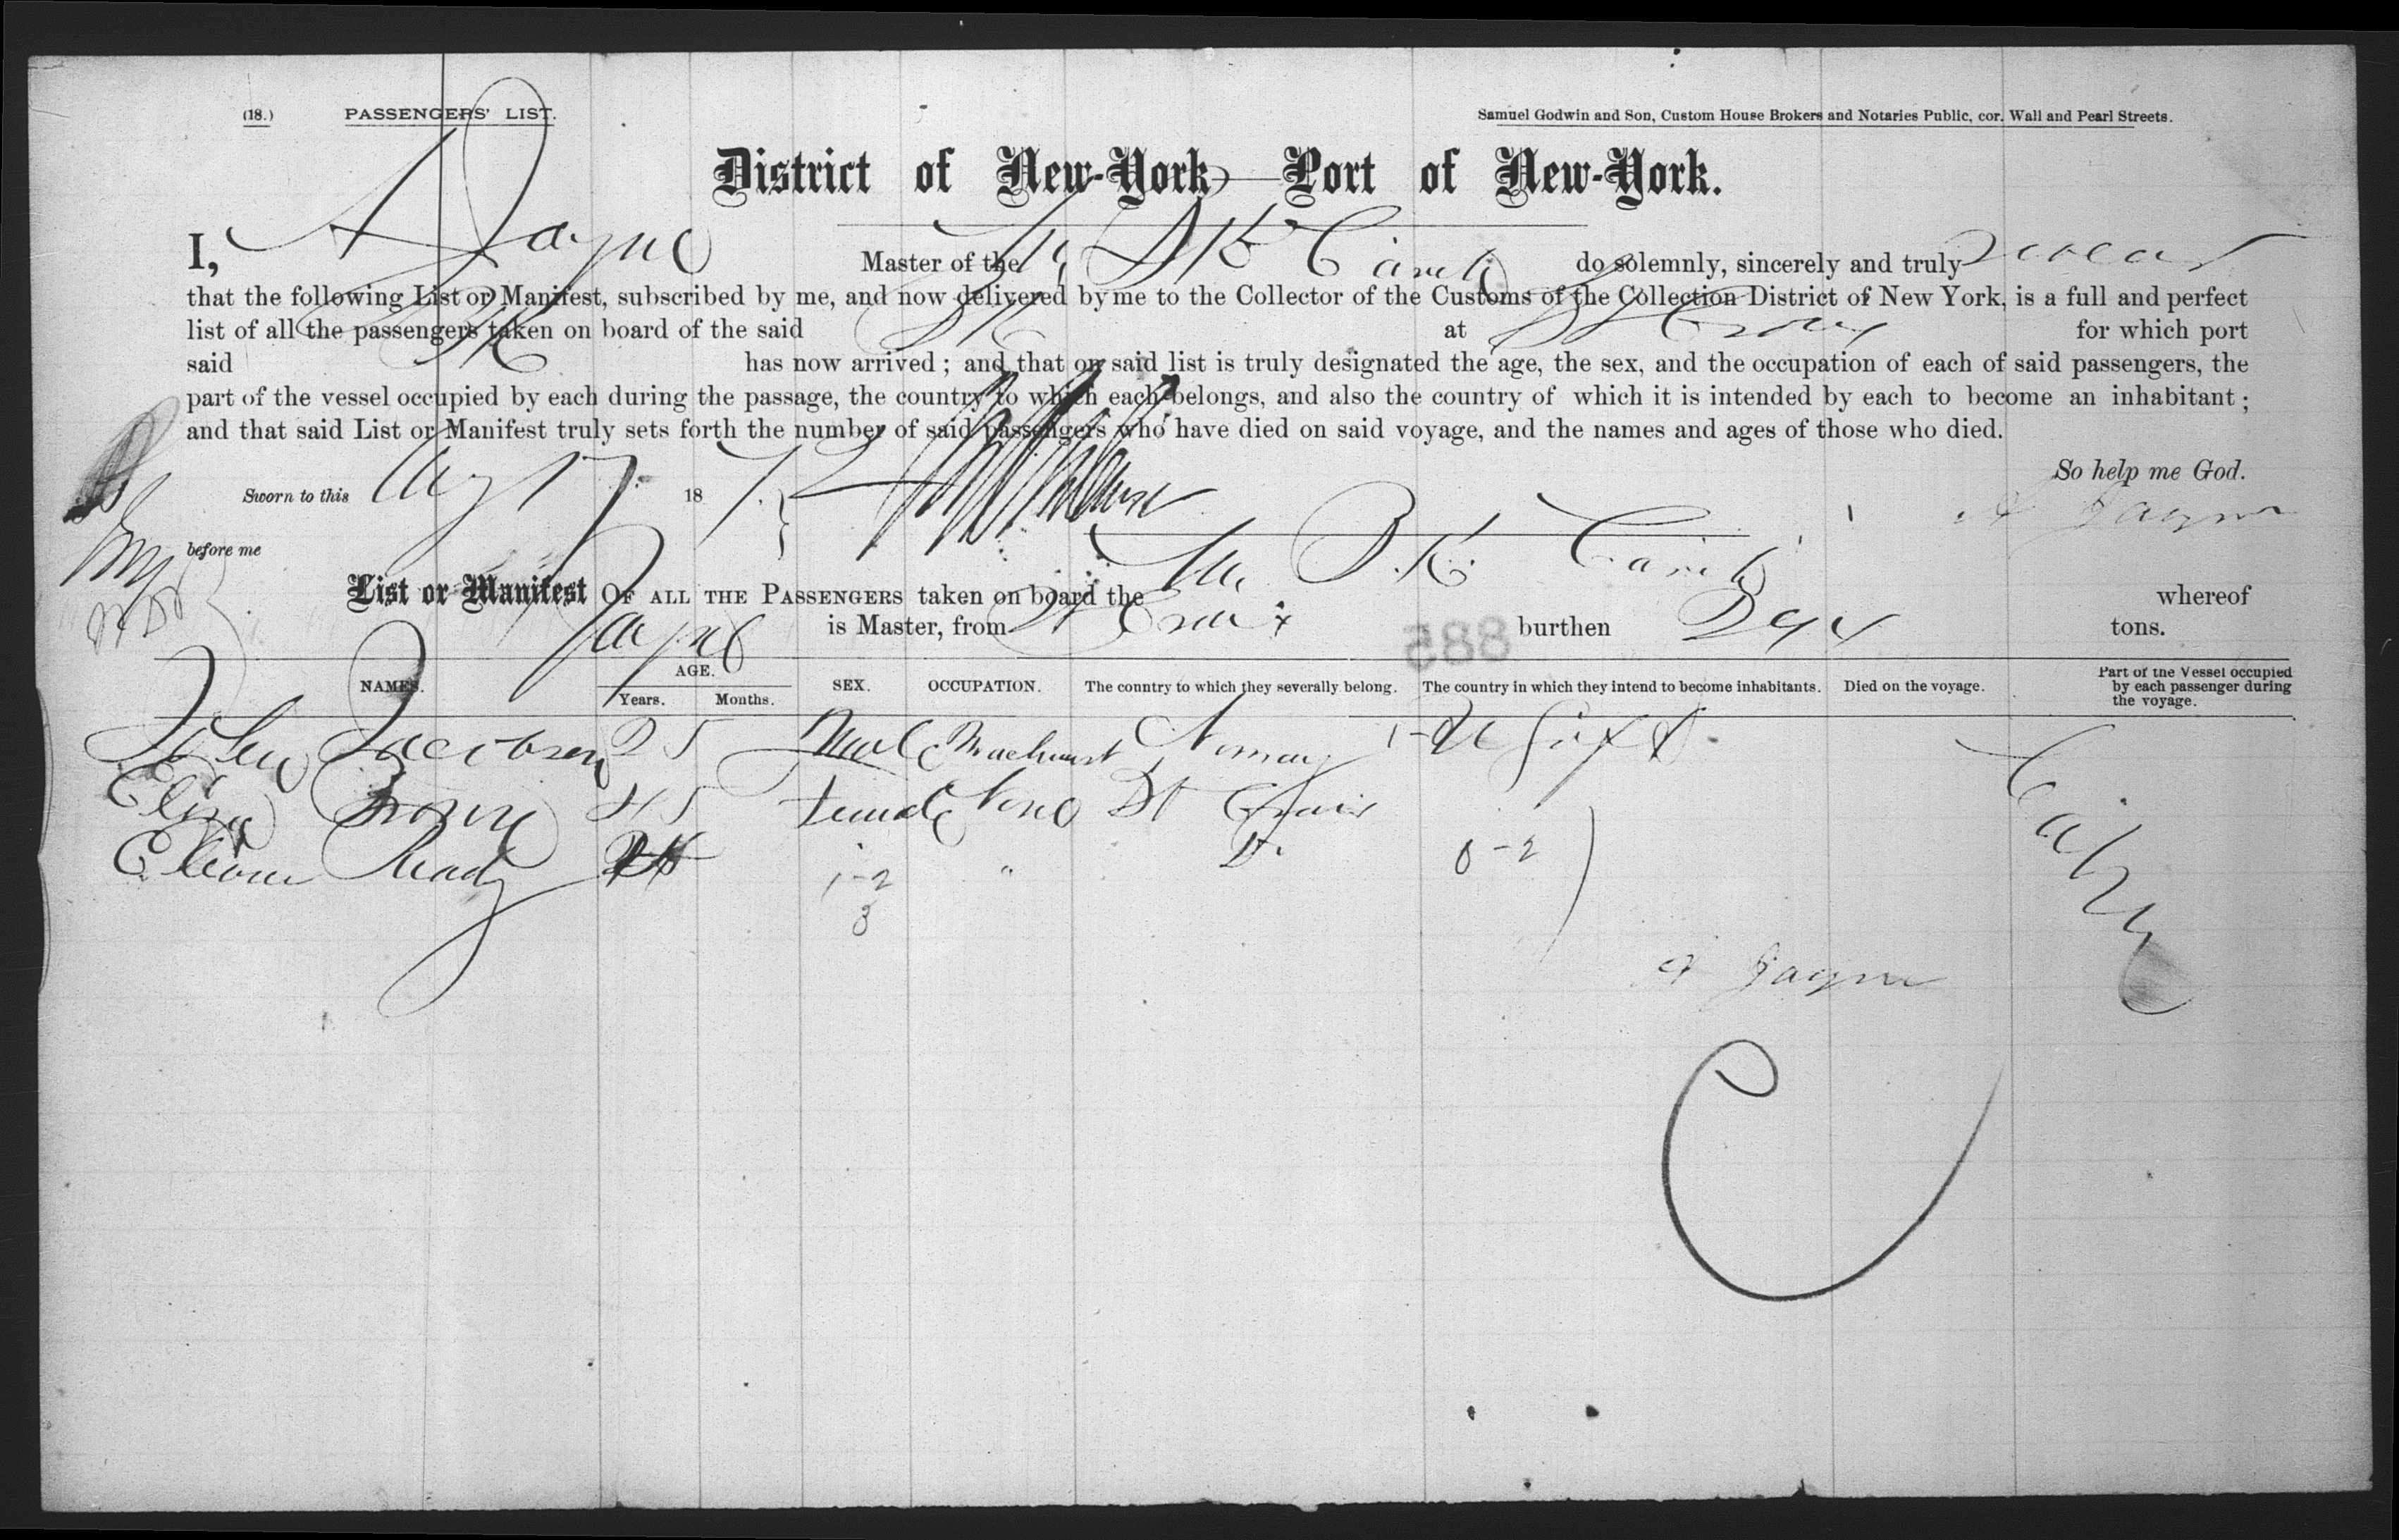 (18.) PASSENGERS' LIST. Samuel Godwin and Son, Custom House Brokers and Notaries Public, cor. Wall and Pearl Streets.
District of New-York—Port of New-York.
I, A Jayne Master of the do solemnly, sincerely and truly swear
that the following List or Manifest, subscribed by me, and now delivered by me to the Collector of the Customs of the Collection District of New York, is a full and perfect
list of all the passengers taken on board of the said at St Croix for which port
said has now arrived ; and that on said list is truly designated the age, the sex, and the occupation of each of said passengers, the
part of the vessel occupied by each during the passage, the country to which each belongs, and also the country of which it is intended by each to become an inhabitant ;
and that said List or Manifest truly sets forth the number of said passengers who have died on said voyage, and the names and ages of those who died.
So help me God.
Sworn to this Aug 17 1872
A Jayne
before me
List or Manifest OF ALL THE PASSENGERS taken on board the whereof
Jayne is Master, from St Croix burthen tons.
885
NAMES. AGE. Years. Months. SEX. OCCUPATION. The country to which they severally belong. The country in which they intend to become inhabitants. Died on the voyage. Part of the Vessel occupied by each passenger during the voyage.
Jacobsen 25 Male Machinist Norway
Eliza 45 Female None St Croix
Ready " Do 0-2
1-2
3
Cabin
A Jayne